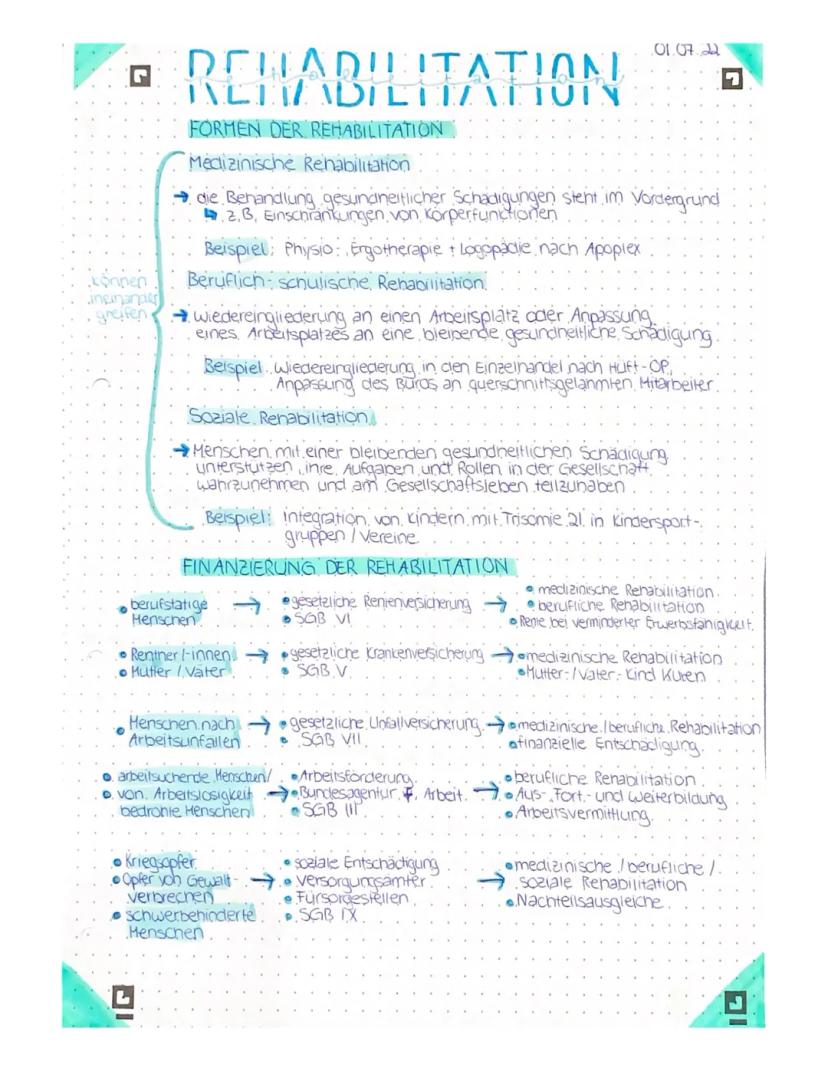 01.07.22
REHABILITATION
Rehabilitation
FORMEN DER REHABILITATION
Medizinische Rehabilitation
→ die Behandlung gesundheitlicher Schädigungen steht im Vordergrund
↳ z.B. Einschränkungen von Körperfunktionen
Beispiel: Physio-, Ergotherapie + Logopädie nach Apoplex
können
ineinander
greifen
Beruflich-schulische Rehabilitation
→ Wiedereingliederung an einen Arbeitsplatz oder Anpassung
eines Arbeitsplatzes an eine bleibende gesundheitliche Schädigung
Beispiel: Wiedereingliederung in den Einzelhandel nach Hüft-OP,
Anpassung des Büros an querschnittsgelähmten Mitarbeiter
Soziale Rehabilitation
→ Menschen mit einer bleibenden gesundheitlichen Schädigung
unterstützen, ihre Aufgaben und Rollen in der Gesellschaft
wahrzunehmen und am Gesellschaftsleben teilzuhaben
Beispiel: Integration von Kindern mit Trisomie 21 in Kindersport-
gruppen / Vereine
FINANZIERUNG DER REHABILITATION
• berufstätige
Menschen
→ • gesetzliche Rentenversicherung
• SGB VI
→ • medizinische Rehabilitation
• berufliche Rehabilitation
• Rente bei verminderter Erwerbsfähigkeit
• Rentner/-innen
• Mütter / Väter
→ • gesetzliche Krankenversicherung
• SGB V
→ • medizinische Rehabilitation
• Mutter-/Vater-Kind Kuren
• Menschen nach
Arbeitsunfällen
→ • gesetzliche Unfallversicherung
• SGB VII
→ • medizinische / berufliche Rehabilitation
• finanzielle Entschädigung
• arbeitsuchende Menschen/
• von Arbeitslosigkeit
bedrohte Menschen
→ • Arbeitsförderung
• Bundesagentur f. Arbeit
• SGB III
→ • berufliche Rehabilitation
• Aus-, Fort- und Weiterbildung
• Arbeitsvermittlung
• Kriegsopfer
• Opfer von Gewalt-
verbrechen
• schwerbehinderte
Menschen
→ • soziale Entschädigung
• Versorgungsämter
• Fürsorgestellen
• SGB IX
→ • medizinische / berufliche /
soziale Rehabilitation
• Nachteilsausgleiche